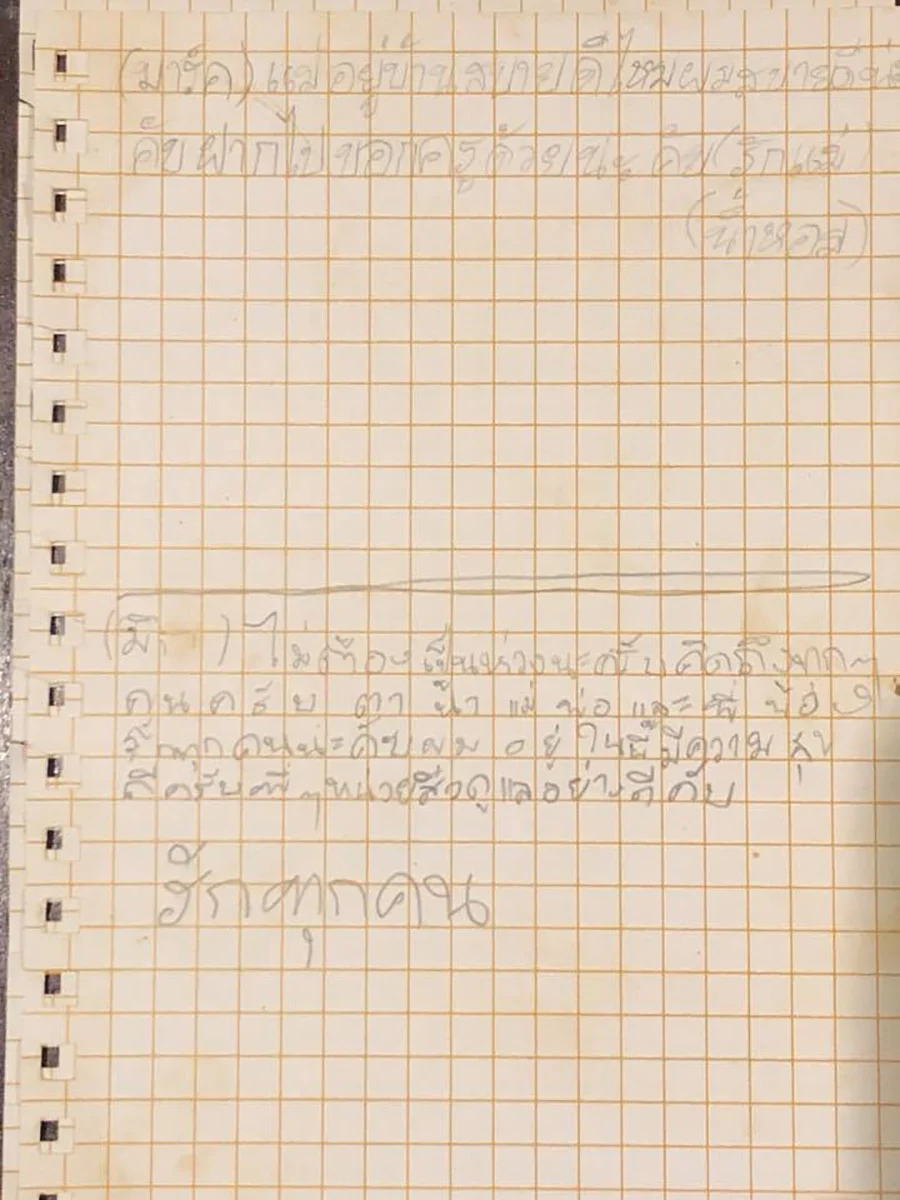 (มาร์ค) แม่อยู่บ้านสบายดีไหมผมสบายดี
คับฝากไปบอกครูด้วยนะคับ(รักแม่
(น้ำหอม)
(มิ ) ไม่ต้องเป็นห่วงนะครับคิดถึงทุกๆ
คนครับ ตา น้า แม่ พ่อ และ พี่ น้อง
รักทุกคนนะคับผม อยู่ในนี้มีความสุข
ดีครับพี่ๆหน่วยสีวดูแลอย่างดีคับ
รักทุกคน